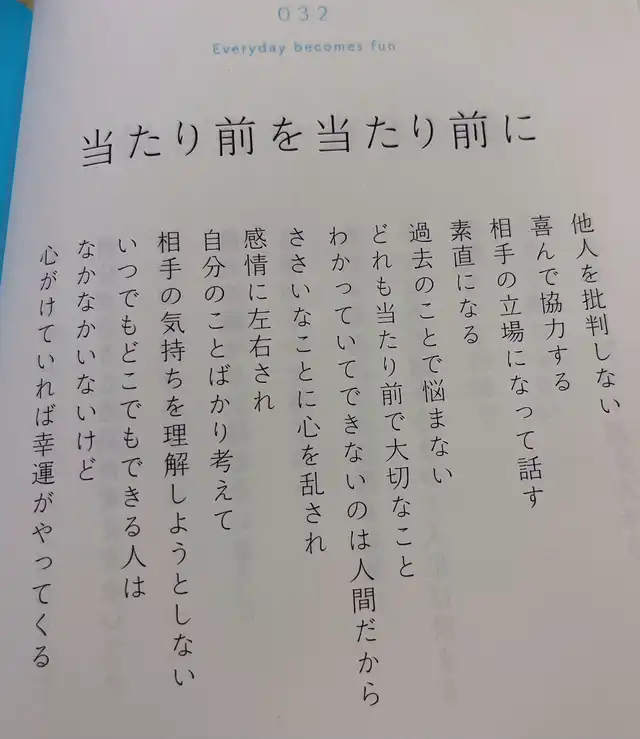 032
Everyday becomes fun
当たり前を当たり前に
他人を批判しない
喜んで協力する
相手の立場になって話す
素直になる
過去のことで悩まない
どれも当たり前で大切なこと
わかっていてできないのは人間だから
ささいなことに心を乱され
感情に左右され
自分のことばかり考えて
相手の気持ちを理解しようとしない
いつでもどこでもできる人は
なかなかいないけど
心がけていれば幸運がやってくる